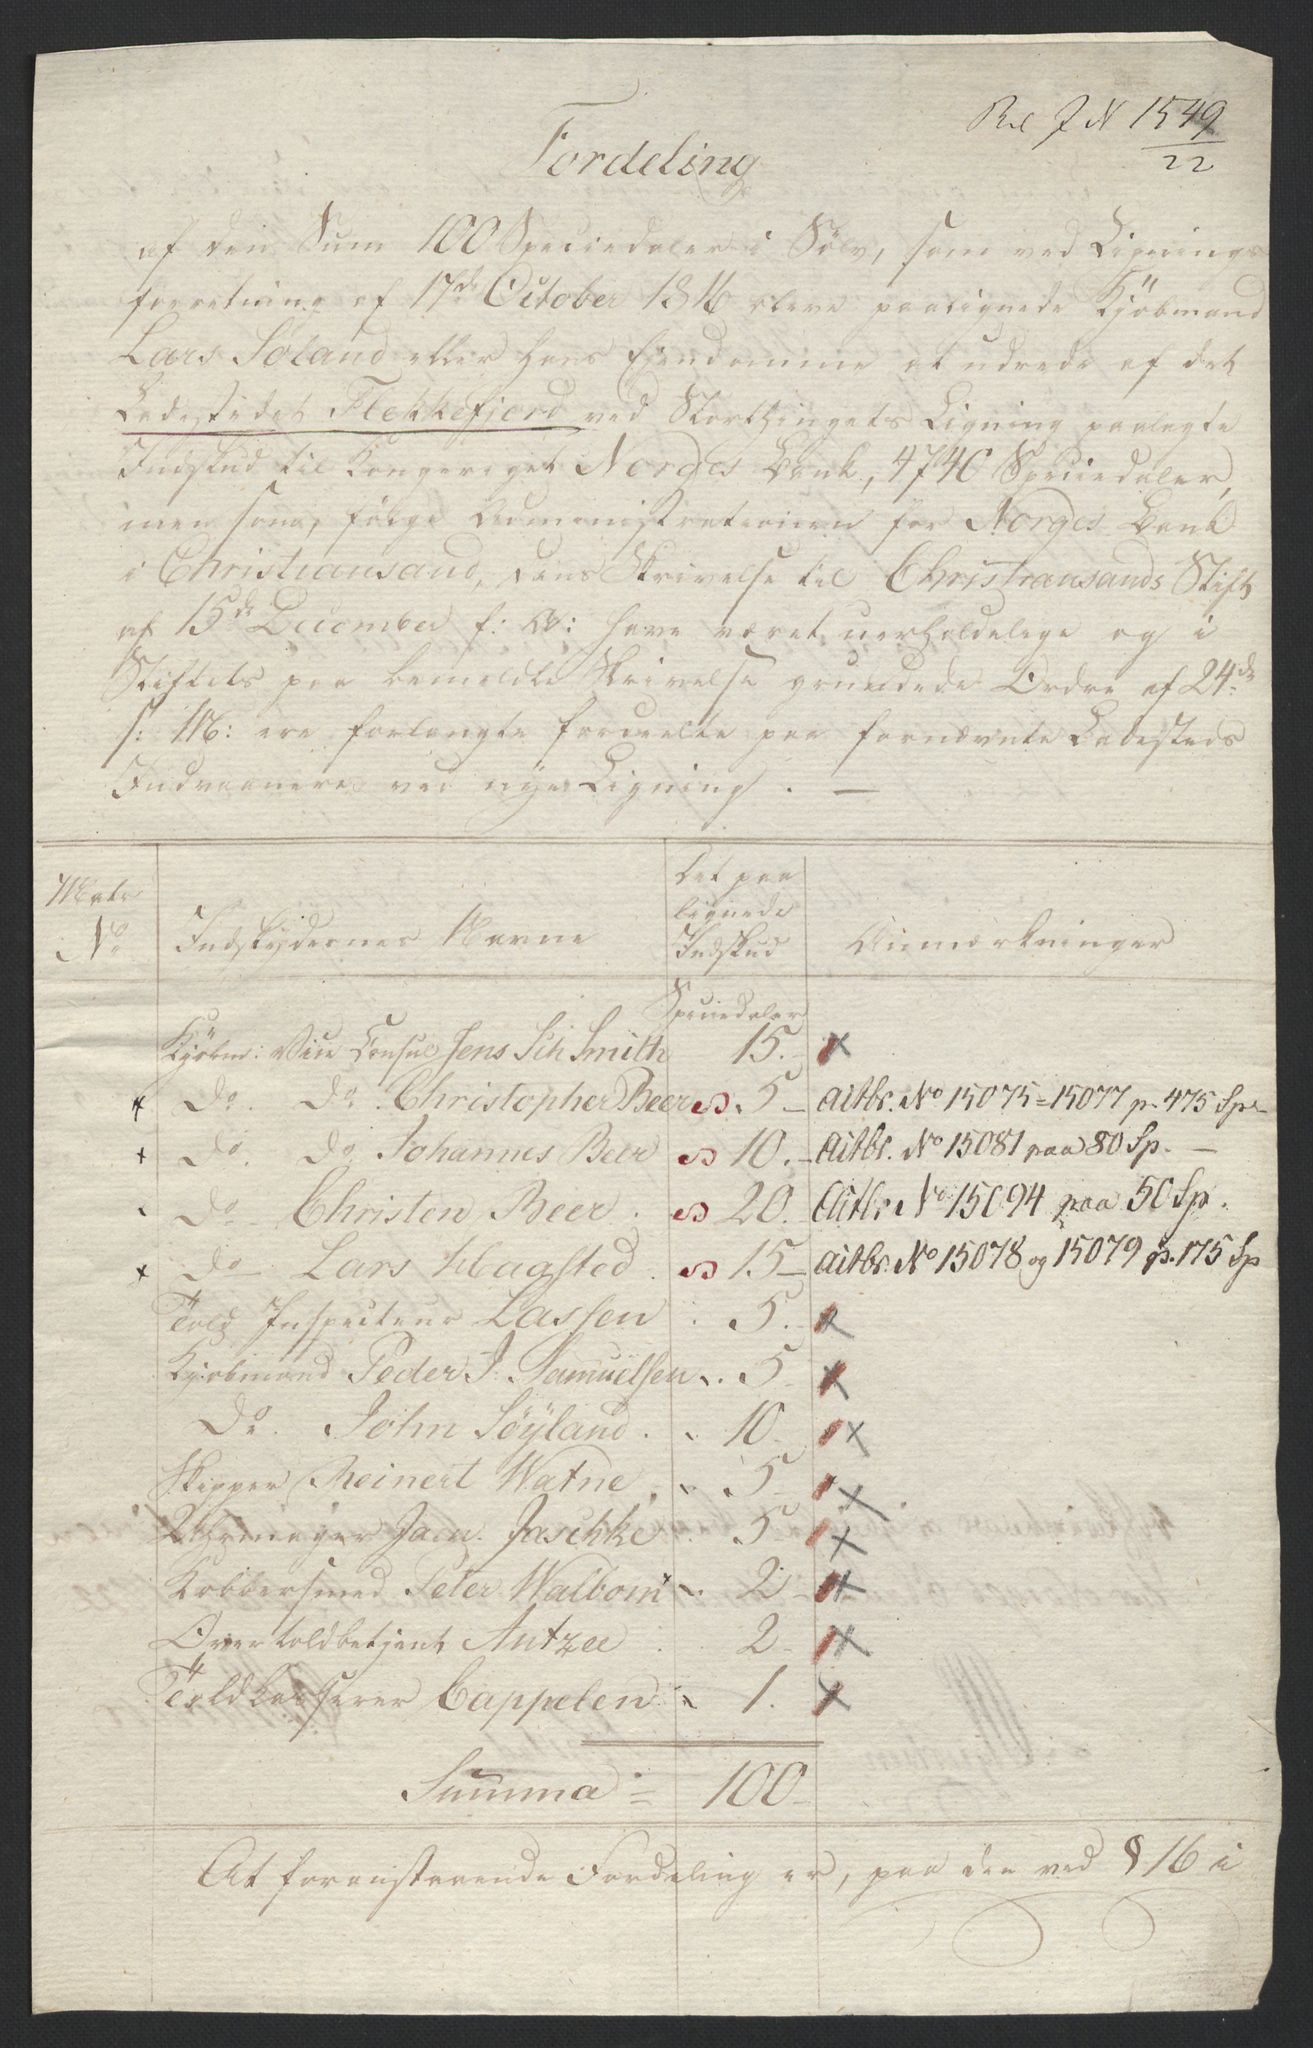 Rel J N 1549
22
Fordeling
af den Sum 100 Speciedaler i Sølv, som ved Lignings
forretning af 17de October 1816 bleve paalignede Kjöbmand
Lars Söland eller hans Ejendomme at udrede af det
Ladestedet Flekkefjord ved Storthingets Ligning paalagte
Indskud til Kongeriget Norges Bank, 4740 Speciedaler,
men som, følge Administrationen for Norges Bank
i Christiansand, dens Skrivelse til Christiansands Stift
af 15de December f: A: have været uerholdelige og i
Stiftets paa bemeldte Skrivelse grundede Ordre af 24de
s: M: ere forlangte fordeelte paa fornævnte Ladesteds
Indvaanere ved nye Ligning. —
Matr No
Indskydernes Navne
Det paa lignede Indskud
Anmærkninger
Speciedaler
Kjöbm: Vice Consul Jens Sch Smith 15. -
Do. Do. Christopher Beer 5 - Actbr. No 15075 = 15077 p. 475 Sp -
Do. Do. Johannes Beer 10. - Actbr. No 15081 paa 80 Sp. -
Do Christen Beer. 20. Actbr No 15094 paa 50 Sp.
Do Lars Haugsted. 15 - Actbr. No 15078 og 15079 p. 175 Sp
Told Inspecteur Lassen 5. -
Kjöbmand Peder J. Samuelsen 5 -
Do. John Söyland. 10. -
Skipper Reinert Watne. 5 -
Uhrmager Jacu. Jaschke 5 -
Kobbersmed Peter Walbom 2 -
Over toldbetjent Antzee 2 -
Told Casserer Cappelen 1.
Summa = 100 -
At foranstaaende Fordeling er, paa den ved § 16 i